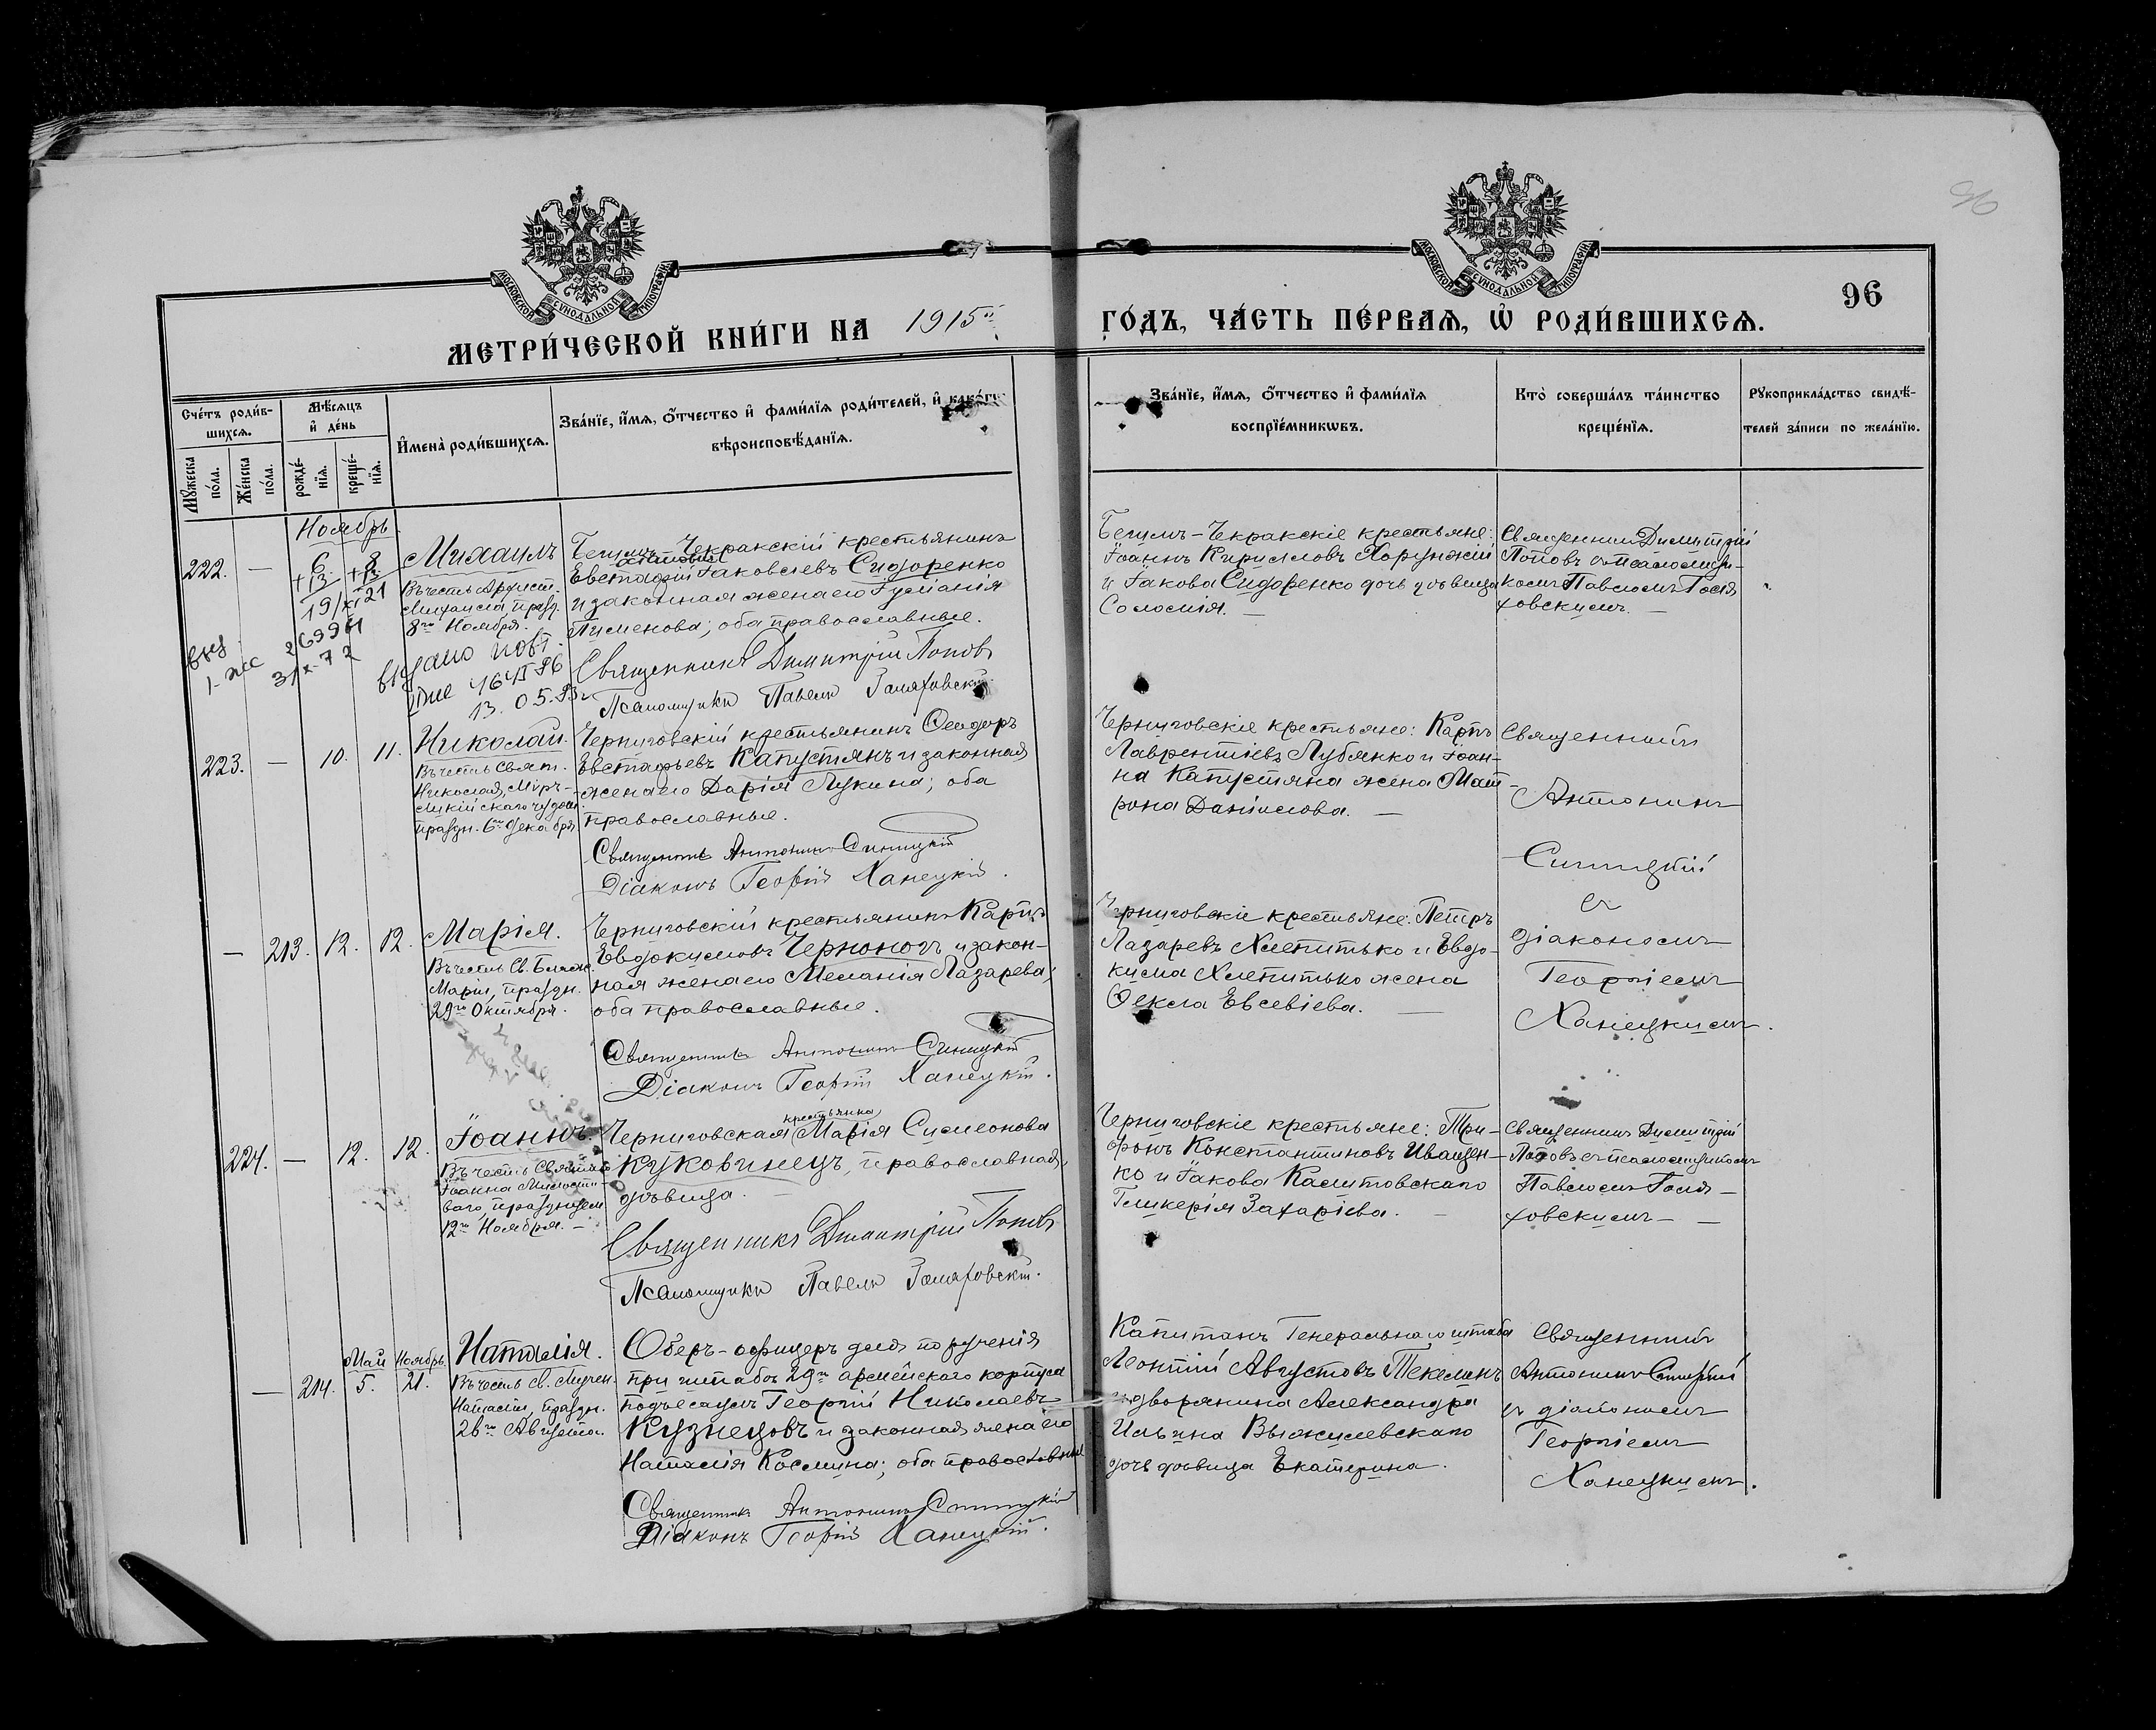 96
МОСКОВСКОЙ СУНОДАЛЬНОЙ ТИПОГРАФІИ
МОСКОВСКОЙ СУНОДАЛЬНОЙ ТИПОГРАФІИ
96
МЕТРИ́ЧЕСКОЙ КНИ́ГИ НА 1915й
ГО́ДЪ, ЧА́СТЬ ПЕ́РВАѦ, Ѡ҆ РОДИ́ВШИХСѦ.
Сче́тъ роди́в-
шихсѧ.
Мꙋ́жеска
по́ла.
Же́нска
по́ла.
Мѣ́сѧцъ
и҆ де́нь
рожде́-
нїѧ.
креще́-
нїѧ.
И҆мена̀ роди́вшихсѧ.
Зва́нїе, и҆́мѧ, ѻ҆́тчество и҆ фами́лїѧ роди́телей, и҆ како́гѡ
вѣроисповѣ́данїѧ.
Зва́нїе, и҆́мѧ, ѻ҆́тчество и҆ фами́лїѧ
воспрїе́мникѡвъ.
Кто̀ соверша́лъ та́инство
креще́нїѧ.
Рꙋкоприкла́дство свидѣ́-
телей за́писи по жела́нїю.
Ноябрь.
222. — 6 8
+13 +13
19/XI 21
Михаилъ
Въ честь Архист.
Михаила, празд.
8го Ноября.
26996
31 X-72
выдано повт.
13.05.93г
Бегимъ Чекракскій крестьянинъ
Евстафій Іаковлевъ Сидоренко
и законная жена его Гулианія
Пименова; оба православные.
Священникъ Димитрій Поповъ
Псаломщикъ Павелъ Голяховскій
Бегимъ-Чекракскіе крестьяне:
Іоаннъ Кирилловъ Хорунжій
и Іакова Сидоренко дочь дѣвица
Соломія. —
Священникъ Димитрій
Поповъ съ псаломщи-
комъ Павломъ Голя-
ховскимъ. —
223. — 10. 11.
Николай.
Въ честь Свят.
Николая, Мүръ-
ликійскаго чудотв.
праздн. 6го Декабря.
Черниговскій крестьянинъ Ѳеодоръ
Евстафьевъ Капустянъ и законная
жена его Дарія Лукина; оба
православные.
Священникъ Антонинъ Синицкій
Діаконъ Георгій Ханецкій.
Черниговскіе крестьяне: Карпъ
Лаврентіевъ Лубянко и Іоан-
на Капустяна жена Мат-
рона Даніилова. —
Священникъ
Антонинъ
Синицкій
съ
діакономъ
Георгіемъ
Ханецкимъ.
— 213. 12. 12.
Марія.
Въ честь Св. Блаж.
Маріи, праздн.
29го Октября.
Черниговскій крестьянинъ Карпъ
Евдокимовъ Черноногъ и закон-
ная жена его Меланія Лазарева;
оба православные.
Священникъ Антонинъ Синицкій
Діаконъ Георгій Ханецкій.
Черниговскіе крестьяне: Петръ
Лазаревъ Хлепитько и Евдо-
кима Хлепитько жена
Ѳекла Евсевіева. —
224. — 12. 12.
Іоаннъ.
Въ честь Святаго
Іоанна Милости-
ваго, празднуем
12го Ноября. —
крестьянка
Черниговская Марія Симеонова
Куковинецъ, православная,
дѣвица. —
Священникъ Димитрій Поповъ
Псаломщикъ Павелъ Голяховскій.
Черниговскіе крестьяне: Три-
фонъ Константиновъ Иващен-
ко и Іакова Калитовскаго
Гликерія Захаріева. —
Священникъ Димитрій
Поповъ съ псаломщикомъ
Павломъ Голя-
ховскимъ — —
Май Ноябрь.
— 214. 5. 21.
Наталія.
Въ честь св. мучен.
Наталіи, праздн.
26го Августа.
Оберъ-офицеръ для порученія
при штабѣ 29го армейскаго корпуса
подъесаулъ Георгій Николаевъ
Кузнецовъ и законная жена его
Наталія Космина; оба православные
Священникъ Антонинъ Синицкій
Діаконъ Георгій Ханецкій.
Капитанъ Генеральнаго штаба
Леонтій Августовъ Текелинъ
и дворянина Александра
Ильина Выжилевскаго
дочь дѣвица Екатерина.
Священникъ
Антонинъ Синицкій
съ діакономъ
Георгіемъ
Ханецкимъ.